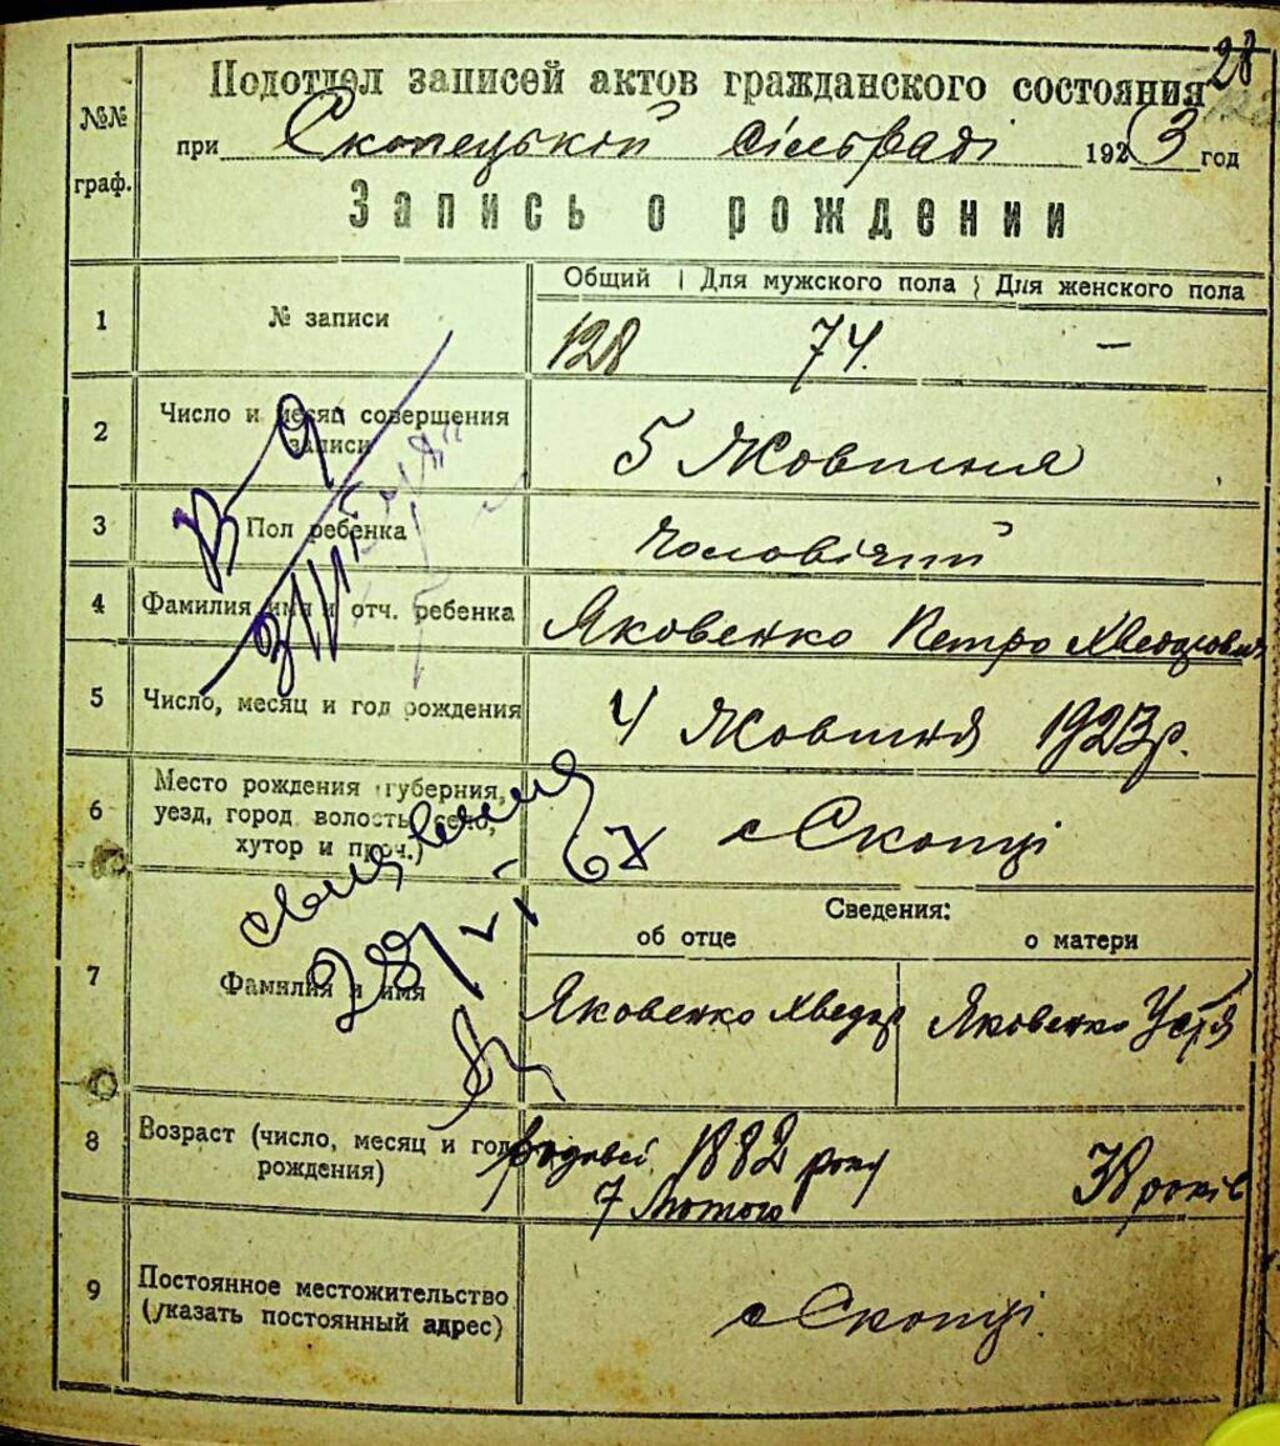 28
№№ граф.
Подотдел записей актов гражданского состояния
при Скопецькій сільраді 1923 год
Запись о рождении
Общий Для мужского пола Для женского пола
1 № записи 128 74. –
2 Число и месяц совершения записи 5 Жовтня
3 Пол ребенка Чоловічий
4 Фамилия имя и отч. ребенка Яковенко Петро Хведорович
5 Число, месяц и год рождения 4 Жовтня 1923 р.
6 Место рождения (губерния,
уезд, город волость, село,
хутор и проч.)
с Скопці
Сведения:
об отце о матери
7 Фамилия и имя Яковенко Хведір Яковенко Устя
8 Возраст (число, месяц и год
рождения)
1882 року
7 Лютого
38 років
9 Постоянное местожительство
(указать постоянный адрес)
с Скопці